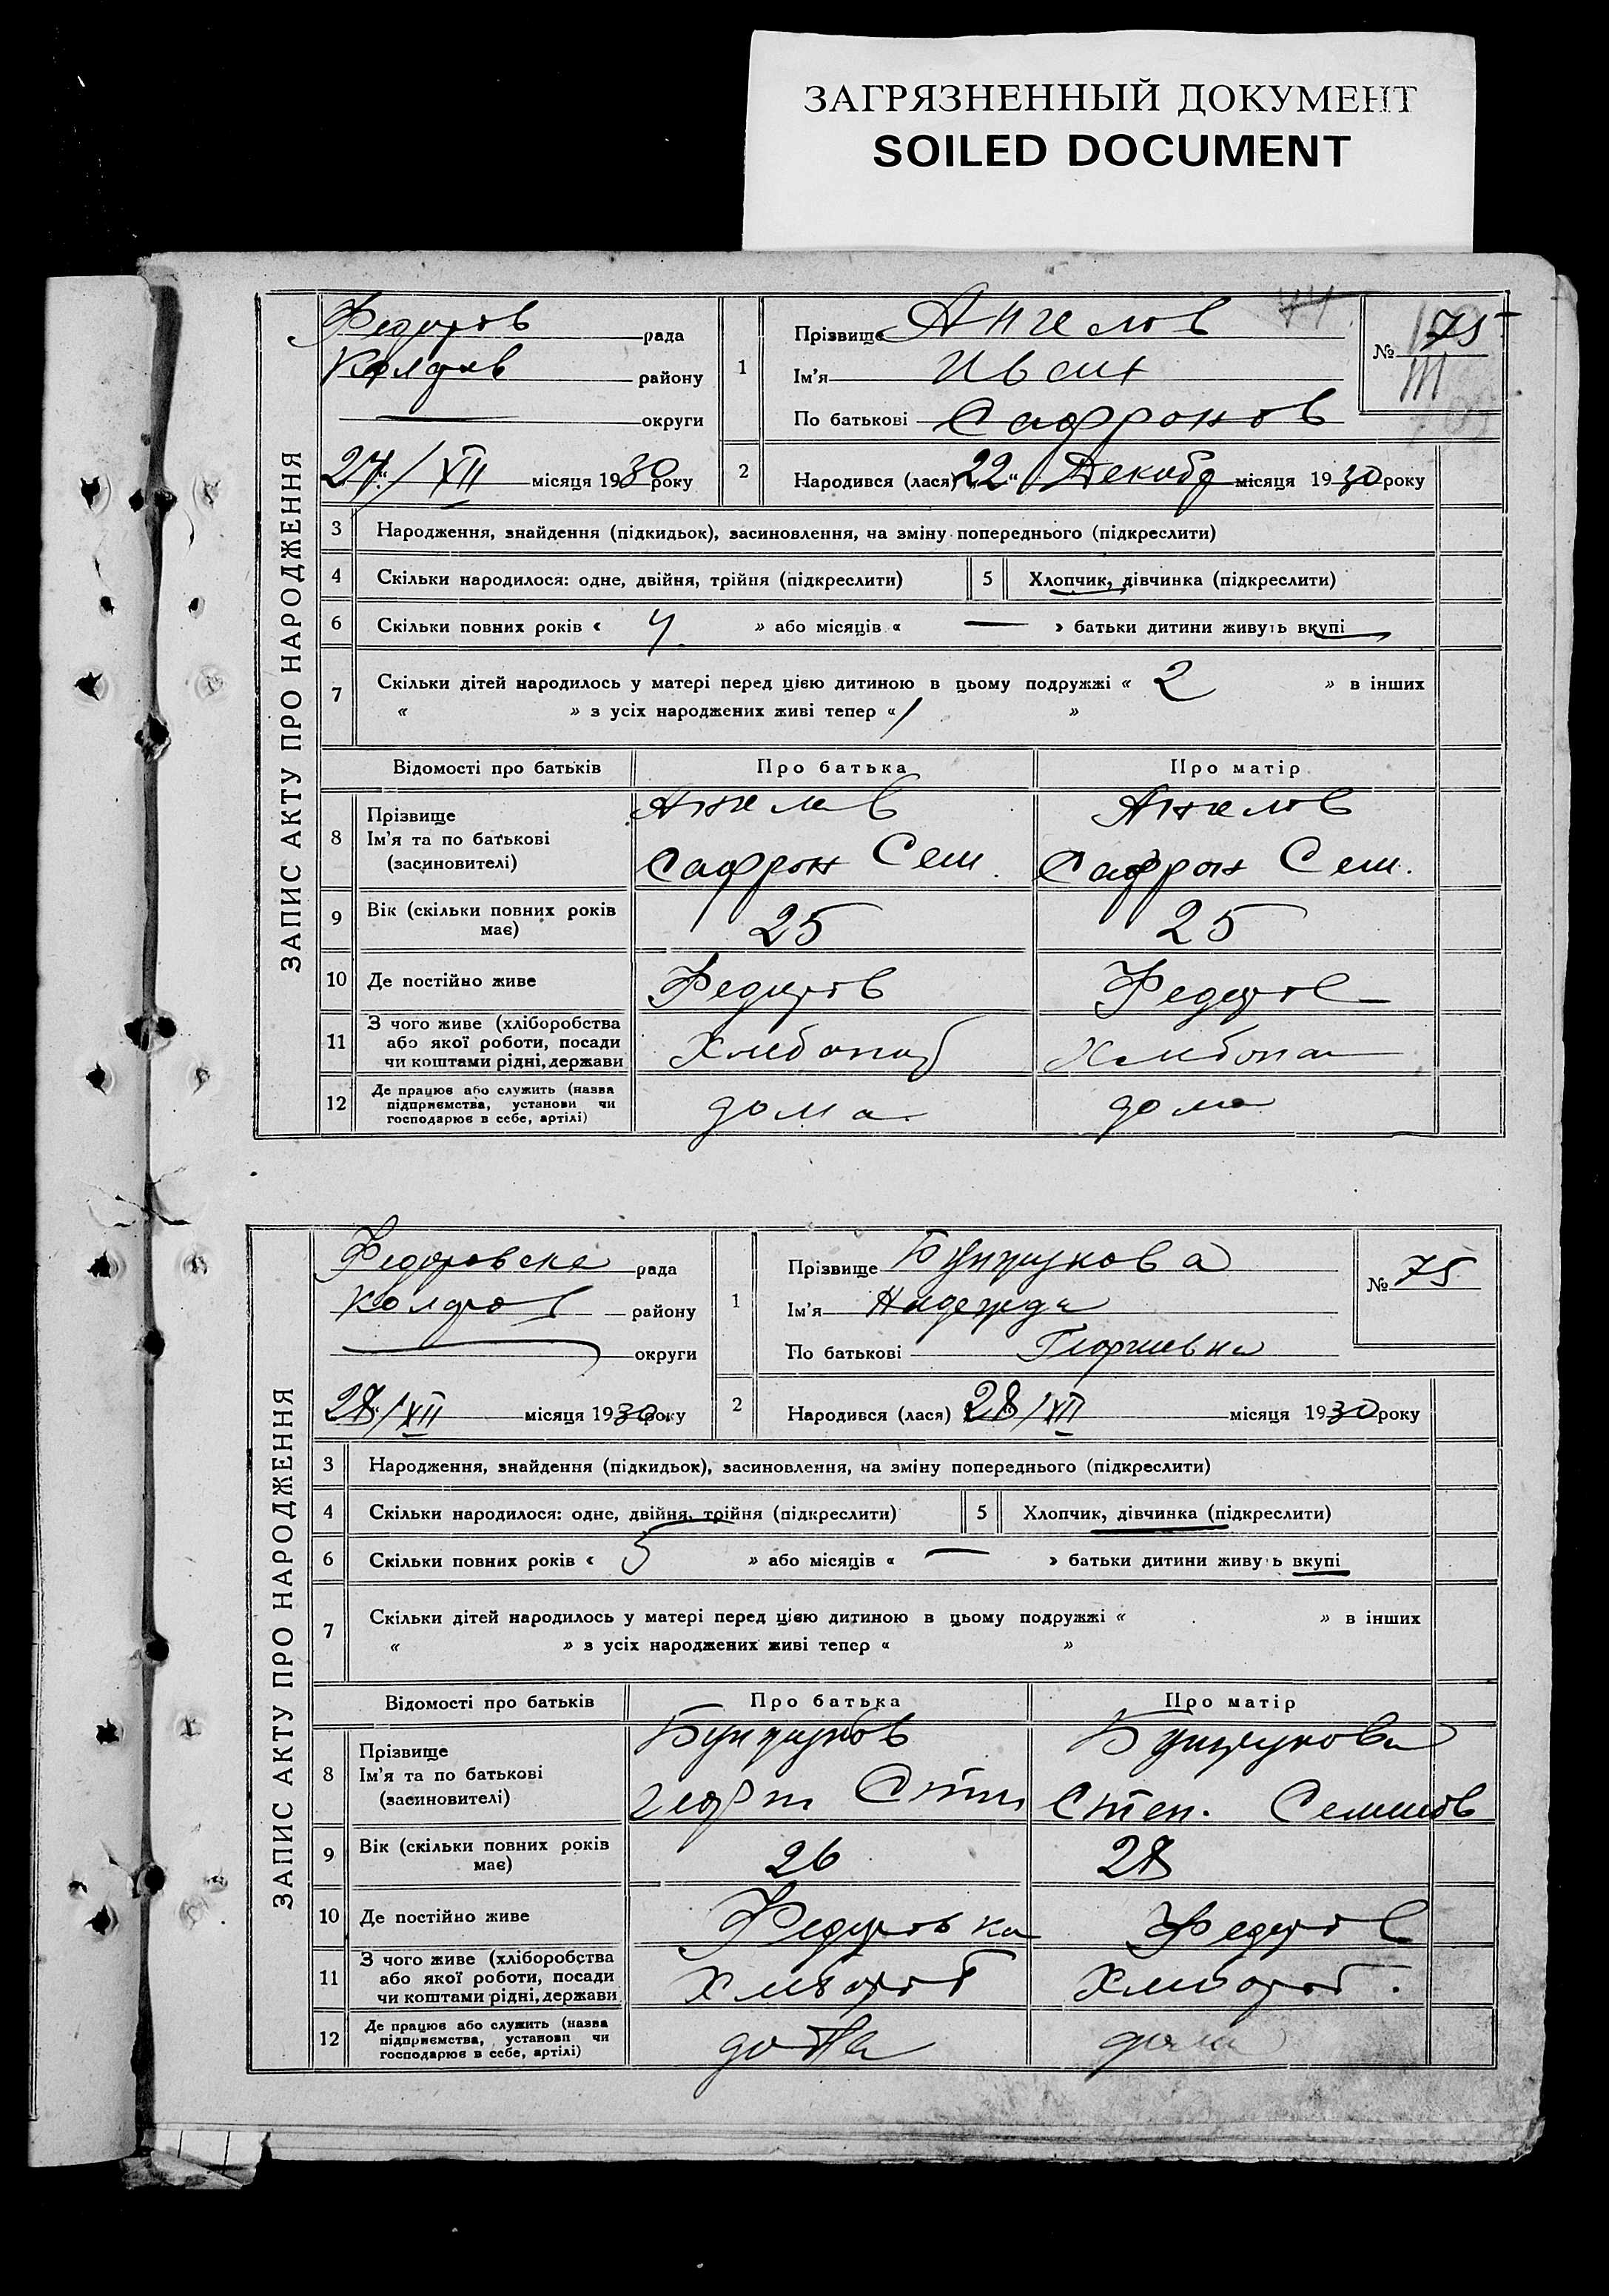 ЗАГРЯЗНЕННЫЙ ДОКУМЕНТ
SOILED DOCUMENT
ЗАПИС АКТУ ПРО НАРОДЖЕННЯ
Федоров рада
района району
округи
27/XII місяця 1930 року
1
Прізвище Ангелов
Ім'я Иван
По батькові Сафронов
№ 75
2
Народився (лася) „22“ Декабр місяця 1930 року
3 Народження, знайдення (підкидьок), засиновлення, на зміну попереднього (підкреслити)
4 Скільки народилося: одне, двійня, трійня (підкреслити) 5 Хлопчик, дівчинка (підкреслити)
6 Скільки повних років « 4 » або місяців « — » батьки дитини живуть вкупі
7 Скільки дітей народилось у матері перед цією дитиною в цьому подружжі « 2 » в інших
« » з усіх народжених живі тепер « 1 »
Відомості про батьків Про батька Про матір
8 Прізвище Ангелов Ангелов
Ім'я та по батькові
(засиновителі) Сафрон Сем. Сафрон Сем.
9 Вік (скільки повних років має) 25 25
10 Де постійно живе Федоров Федоров
11 З чого живе (хліборобства
або якої роботи, посади
чи коштами рідні, держави
12 Де працює або служить (назва
підприємства, установи чи
господарює в себе, артілі) дома дома
ЗАПИС АКТУ ПРО НАРОДЖЕННЯ
Федоровска рада
району
округи
28/XII місяця 1930 року
1
Прізвище
Ім'я Надежда
По батькові Георгиевна
№ 75
2
Народився (лася) 28/XII місяця 1930 року
3 Народження, знайдення (підкидьок), засиновлення, на зміну попереднього (підкреслити)
4 Скільки народилося: одне, двійня, трійня (підкреслити) 5 Хлопчик, дівчинка (підкреслити)
6 Скільки повних років « 5 » або місяців « — » батьки дитини живуть вкупі
7 Скільки дітей народилось у матері перед цією дитиною в цьому подружжі « » в інших
« » з усіх народжених живі тепер « »
Відомості про батьків Про батька Про матір
8 Прізвище
Ім'я та по батькові
(засиновителі) Степ. Семенов
9 Вік (скільки повних років має) 26 28
10 Де постійно живе Федоровка Федоров
11 З чого живе (хліборобства
або якої роботи, посади
чи коштами рідні, держави
12 Де працює або служить (назва
підприємства, установи чи
господарює в себе, артілі) дома дома